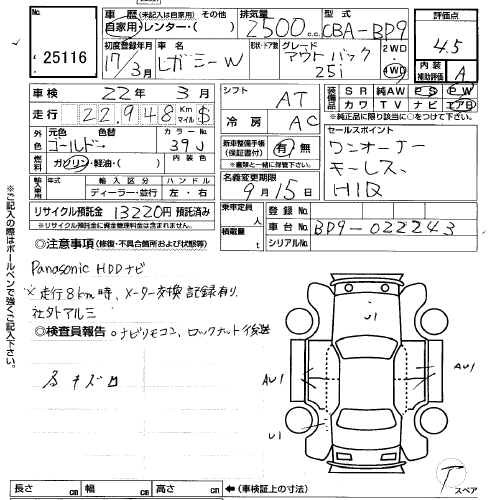 No.
25116
車歴 (未記入は自家用) その他
自家用・レンター・( )
排気量
2500 c.c.
型式
CBA-BP9
評価点
4.5
初度登録年月
17年3月
車名
レガシーW
形状・ドア数
グレード
アウトバック
2.5i
2WD
4WD
内装
補助評価
A
車検 22年 3月
走行 22,948 Km マイル $
シフト AT
冷房 AC
装備品
SR 純AW PS PW
カワ TV ナビ エアB
*純正品に限り該当に○をつけて下さい。
外色
元色 色替
ゴールド
カラーNo
39J
燃料
ガソリン・軽油・( )
内装色
新車整備手帳
(保証書付)
有・無
*書類と一緒に保管下さい。
セールスポイント
ワンオーナー
キーレス
HID
輸入車
年式 輸入区分 ハンドル
ディーラー・並行 左・右
名義変更期限
9月15日
リサイクル預託金 13220円 預託済み
*リサイクル預託金に資金管理料金は含まれません。
乗車定員 人
積載量 t
登録No.
車台No. BP9-022243
シリアルNo.
◎注意事項(修復・不具合箇所および状態等)
Panasonic HDDナビ
※走行8km時、メーター交換記録有り
社外アルミ
◎検査員報告 ○ナビリモコン、ロックナット後送
キズ
U1
AU1
AU1
U1
T
スペア
※ご記入の際はボールペンで強くご記入下さい。
長さ cm 幅 cm 高さ cm ←(車検証上の寸法)